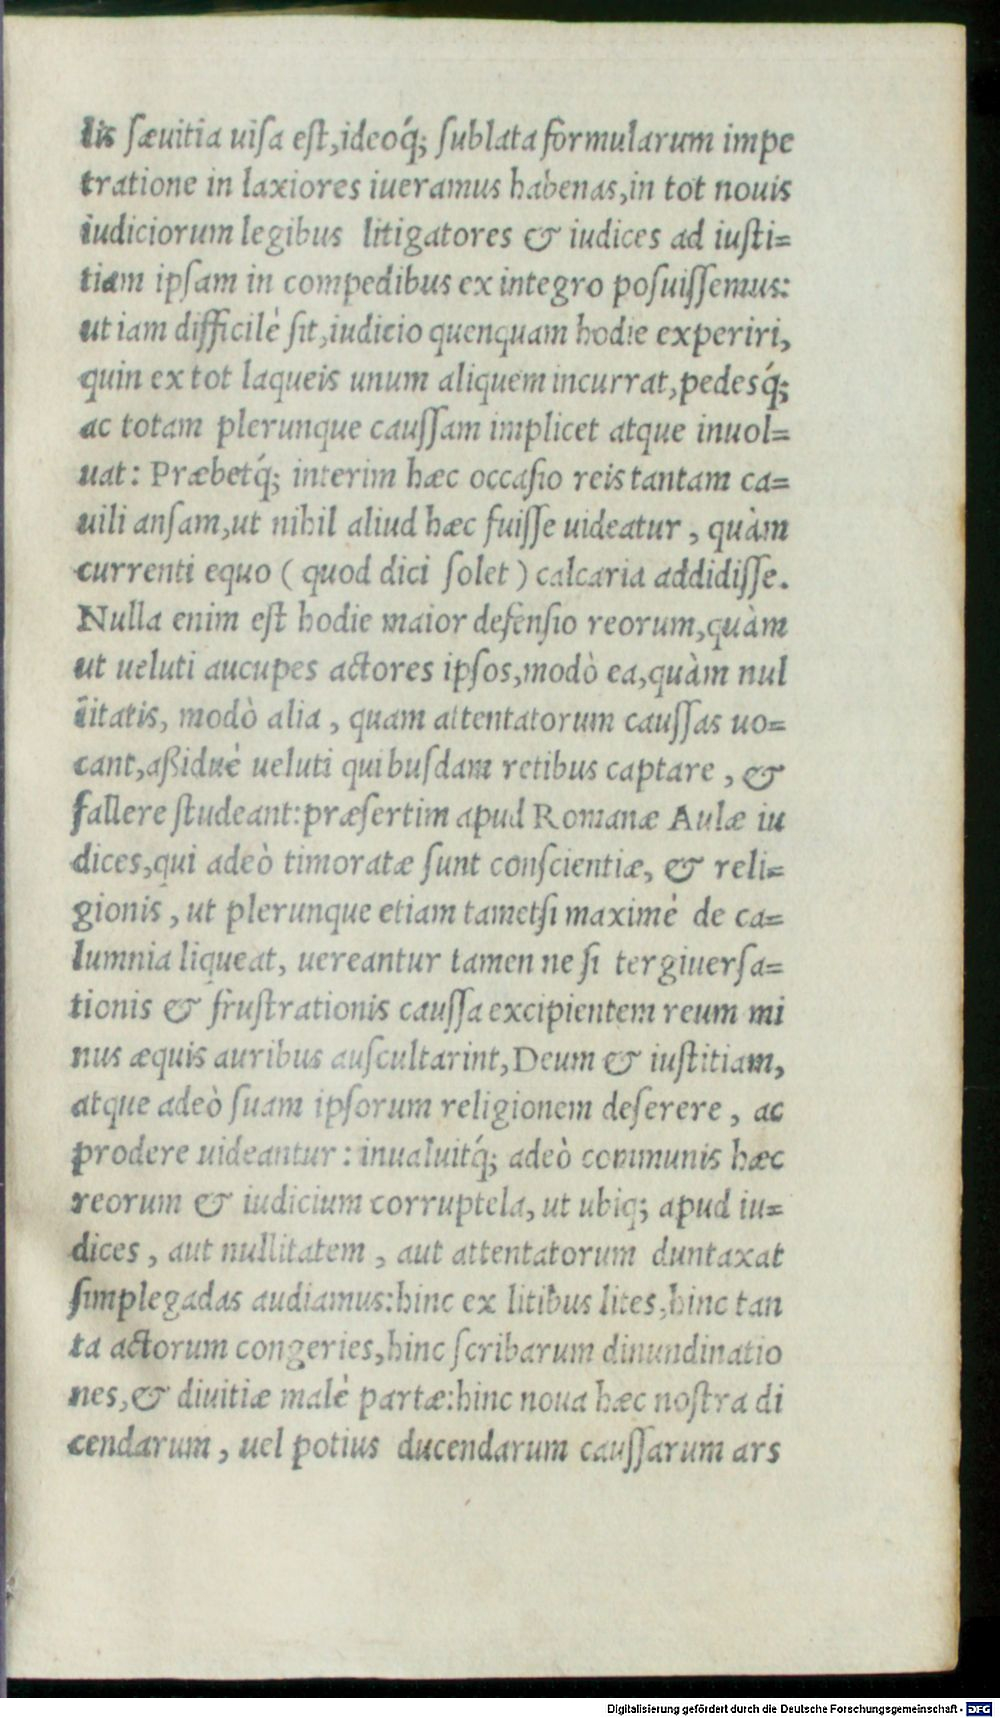 lis sæuitia uisa est,ideoq́; sublata formularum impe
tratione in laxiores iueramus habenas,in tot nouis
iudiciorum legibus litigatores & iudices ad iusti=
tiam ipsam in compedibus ex integro posuissemus:
ut iam difficilè sit,iudicio quenquam hodie experiri,
quin ex tot laqueis unum aliquem incurrat,pedesq́;
ac totam plerunque caussam implicet atque inuol=
uat: Præbetq́; interim hæc occasio reis tantam ca=
uili ansam,ut nihil aliud hæc fuisse uideatur, quàm
currenti equo ( quod dici solet ) calcaria addidisse.
Nulla enim est hodie maior defensio reorum,quàm
ut ueluti aucupes actores ipsos,modò ea,quàm nul
litatis, modò alia, quam attentatorum caussas uo=
cant,aßiduè ueluti quibusdam retibus captare, &
fallere studeant:præsertim apud Romanæ Aulæ iu
dices,qui adeò timoratæ sunt conscientiæ, & reli=
gionis, ut plerunque etiam tametsi maximè de ca=
lumnia liqueat, uereantur tamen ne si tergiuersa=
tionis & frustrationis caussa excipientem reum mi
nus æquis auribus auscultarint,Deum & iustitiam,
atque adeò suam ipsorum religionem deserere, ac
prodere uideantur: inualuitq́; adeò communis hæc
reorum & iudicium corruptela, ut ubiq; apud iu=
dices, aut nullitatem, aut attentatorum duntaxat
simplegadas audiamus:hinc ex litibus lites,hinc tan
ta actorum congeries,hinc scribarum dinundinatio
nes,& diuitiæ malè partæ:hinc noua hæc nostra di
cendarum, uel potius ducendarum caussarum ars
Digitalisierung gefördert durch die Deutsche Forschungsgemeinschaft - DFG